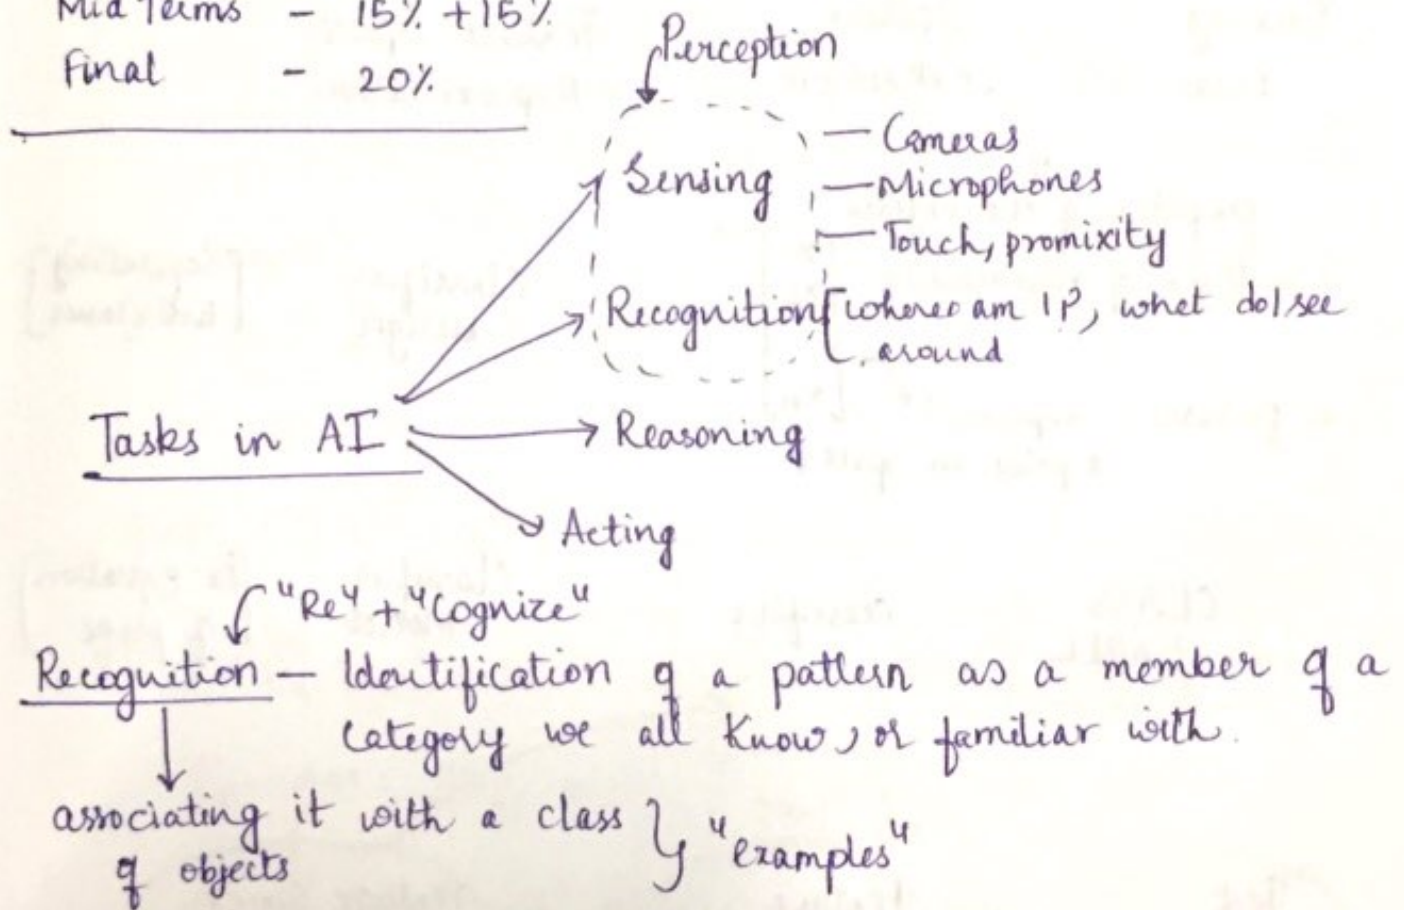 Mid Terms - 15% + 15%
Final - 20%
Perception
Sensing
— Cameras
— Microphones
— Touch, promixity
Recognition [where am I?, what do I see
around
Tasks in AI
Reasoning
Acting
"Re" + "Cognize"
Recognition — Identification of a pattern as a member of a
Category we all know, or familiar with.
associating it with a class
of objects
} "examples"